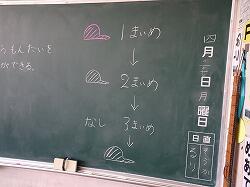 もんだいを
できる。
1まいめ
↓
2まいめ
↓
なし 3まいめ
↓
四月
日
月曜日
日直